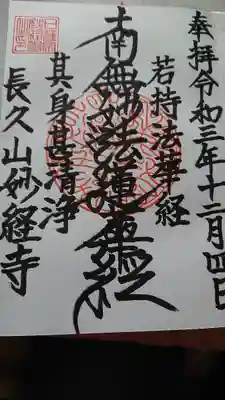 奉拝令和三年十二月四日
若持法華経
南無妙法蓮華經
其身甚清浄
長久山妙経寺